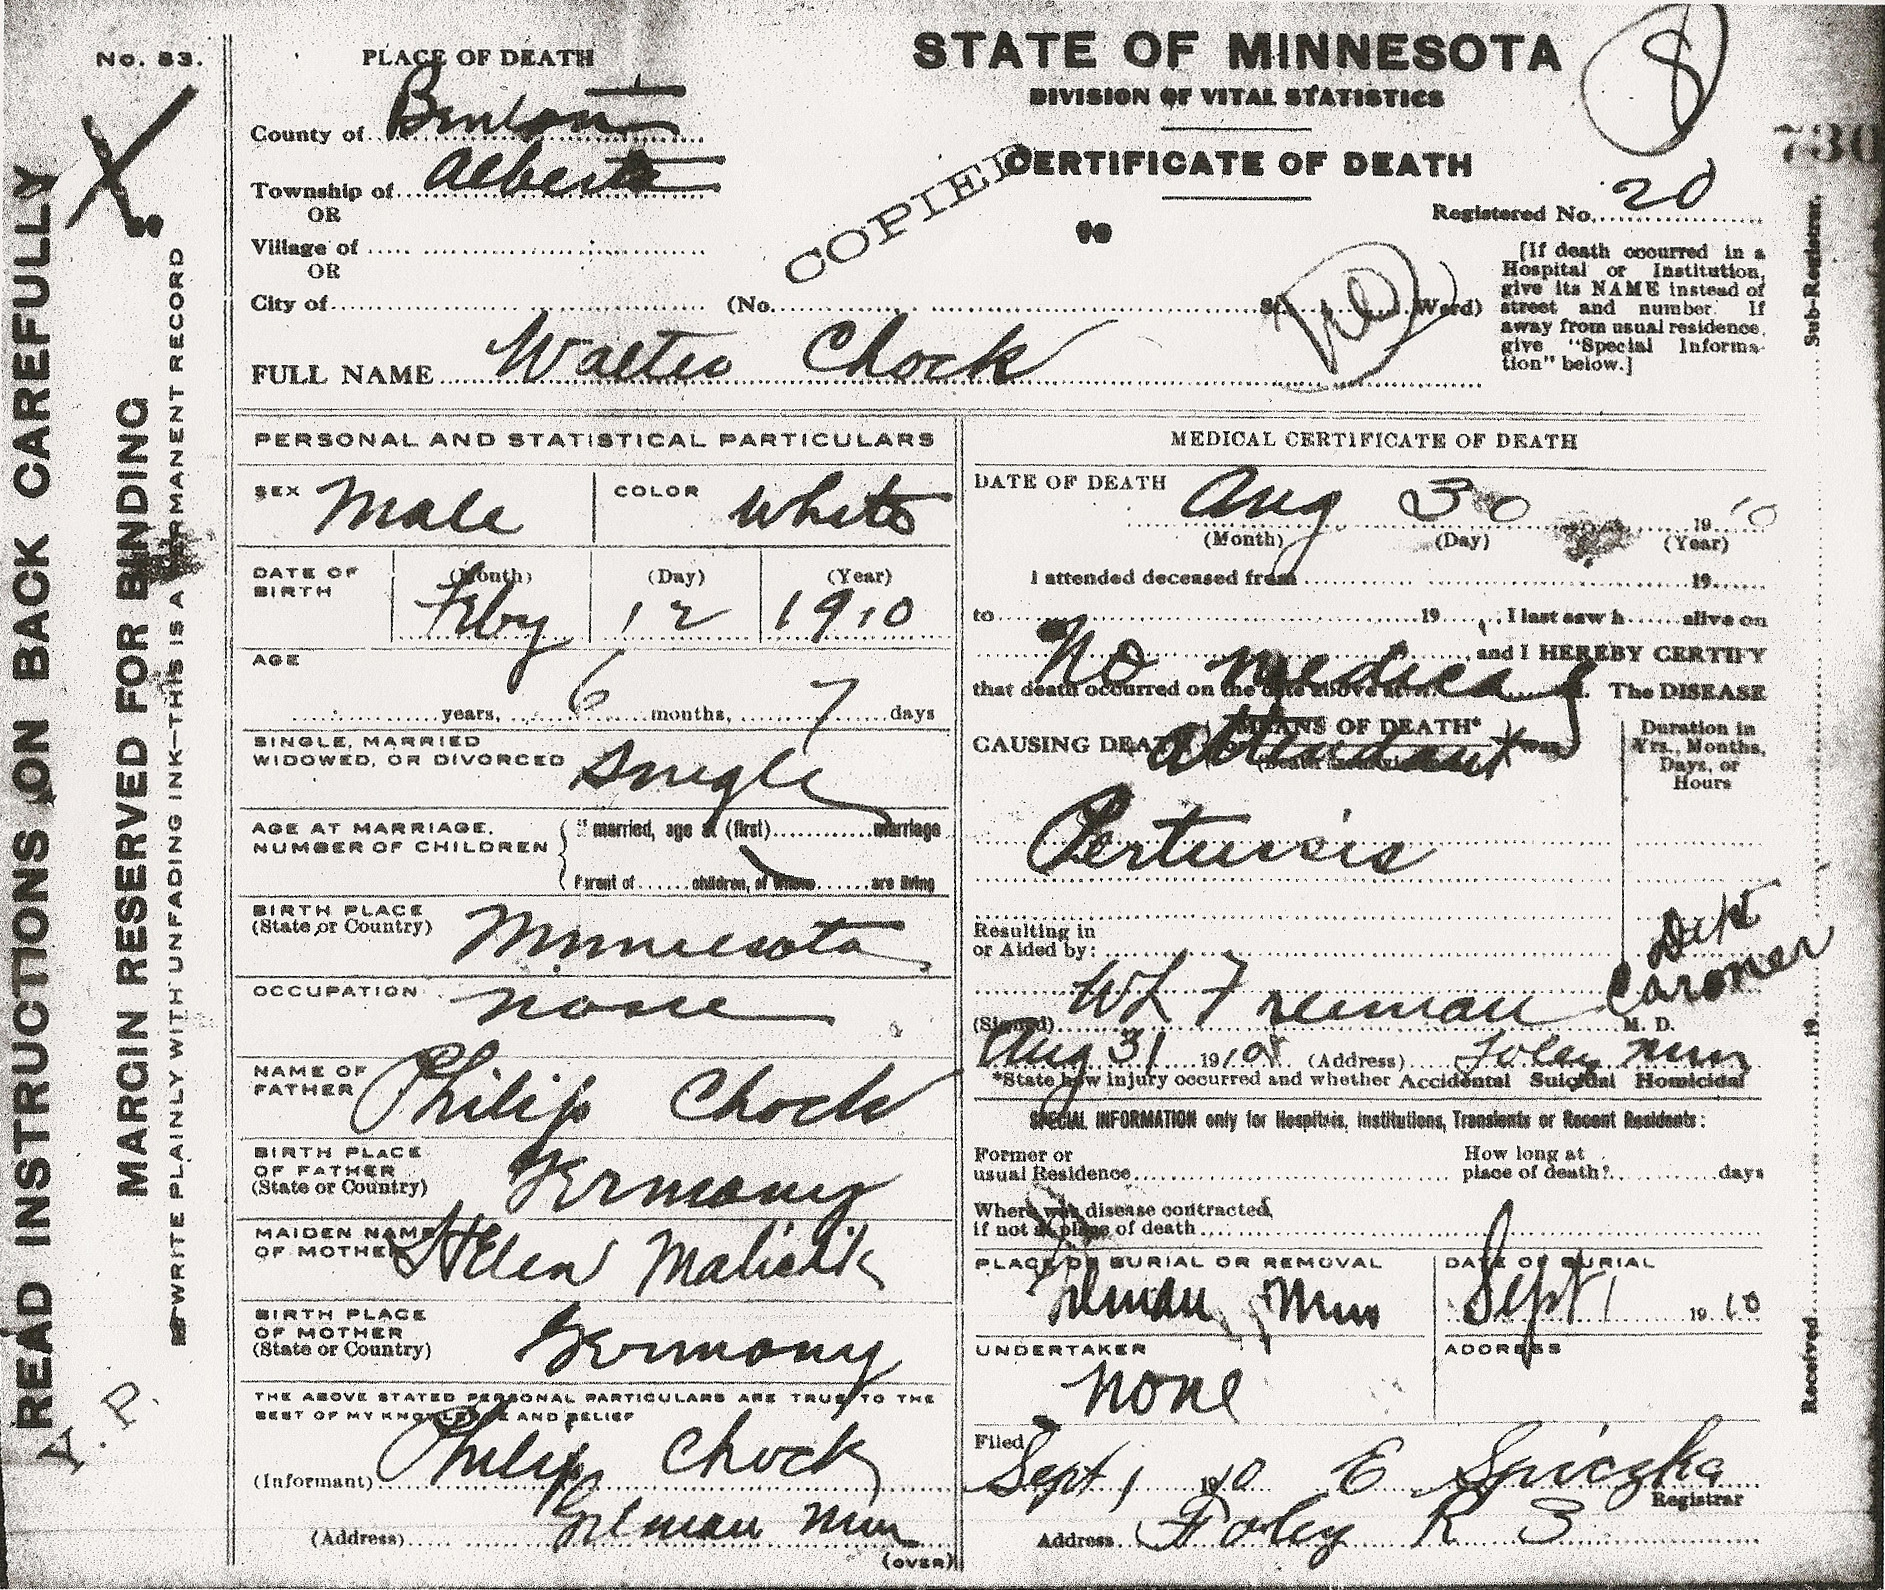 No. 83.
PLACE OF DEATH
STATE OF MINNESOTA
DIVISION OF VITAL STATISTICS
CERTIFICATE OF DEATH
COPIED
8
730
County of Benton
Township of Alberta
OR
Village of
OR
City of (No. St. Ward)
Registered No. 20
[If death occurred in a
Hospital or Institution,
give its NAME instead of
street and number. If
away from usual residence,
give "Special Informa-
tion" below.]
FULL NAME Walter Chock
PERSONAL AND STATISTICAL PARTICULARS
SEX Male COLOR White
DATE OF BIRTH (Month) (Day) (Year)
Feby 12 1910
AGE
years, 6 months, 7 days
SINGLE, MARRIED
WIDOWED, OR DIVORCED Single
AGE AT MARRIAGE, If married, age at (first) marriage
NUMBER OF CHILDREN
Parent of children, of whom are living
BIRTH PLACE
(State or Country) Minnesota
OCCUPATION none
NAME OF
FATHER Philip Chock
BIRTH PLACE
OF FATHER
(State or Country) Germany
MAIDEN NAME
OF MOTHER Helen Malichik
BIRTH PLACE
OF MOTHER
(State or Country) Germany
THE ABOVE STATED PERSONAL PARTICULARS ARE TRUE TO THE
BEST OF MY KNOWLEDGE AND BELIEF
(Informant) Philip Chock
(Address) Gilman Minn
(OVER)
MEDICAL CERTIFICATE OF DEATH
DATE OF DEATH Aug 30 1910
(Month) (Day) (Year)
I attended deceased from 19
to 19 , I last saw h alive on
, and I HEREBY CERTIFY
No medical
that death occurred on the date above The DISEASE
MEANS OF DEATH*
CAUSING DEATH was
attendant
Duration in
Yrs., Months,
Days, or
Hours
Pertussis
Resulting in
or Aided by:
Dept
Coroner
(Signed) WL Freeman M. D.
Aug 31 1910 (Address) Foley Minn
*State how injury occurred and whether Accidental Suicidal Homicidal
SPECIAL INFORMATION only for Hospitals, Institutions, Transients or Recent Residents:
Former or
usual Residence
How long at
place of death? days
Where was disease contracted,
if not at place of death
PLACE OF BURIAL OR REMOVAL
Gilman, Minn
DATE OF BURIAL
Sept 1 1910
UNDERTAKER
None
ADDRESS
Filed
Sept 1 1910 E Spiczka
Registrar
Address Foley R 3
READ INSTRUCTIONS ON BACK CAREFULLY
MARGIN RESERVED FOR BINDING
WRITE PLAINLY WITH UNFADING INK—THIS IS A PERMANENT RECORD
Sub-Registrar.
Received 19